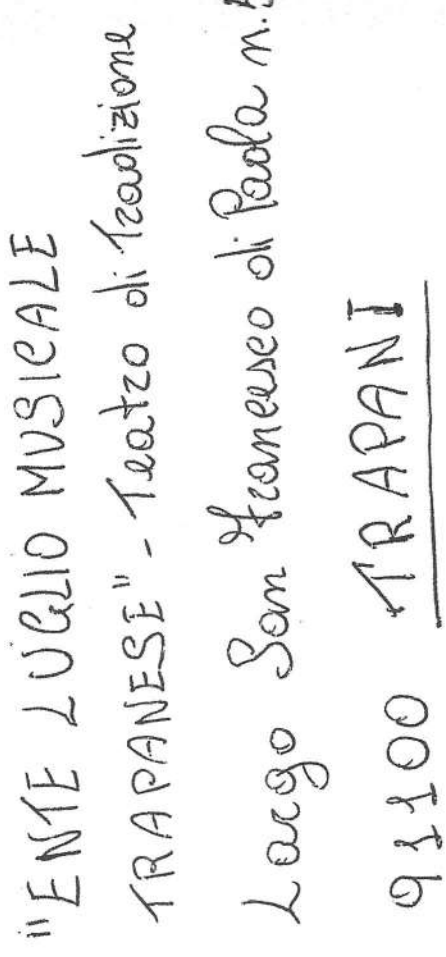 "ENTE LUGLIO MUSICALE
TRAPANESE" - Teatro di Tradizione
Largo San Francesco di Paola n.
91100 TRAPANI